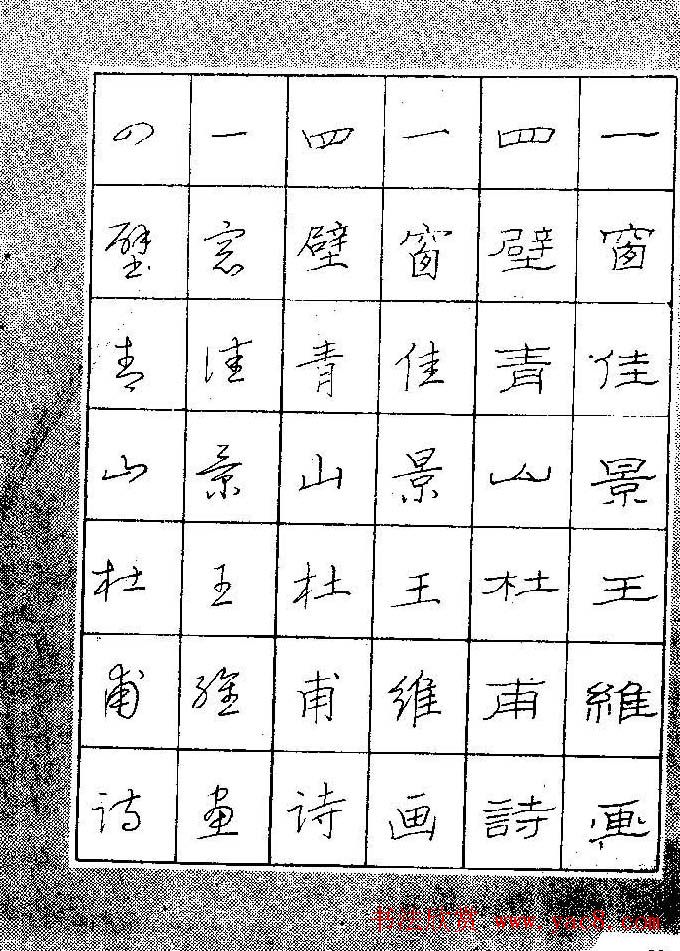 一窗佳景王維画
四壁青山杜甫詩
一窗佳景王维画
四壁青山杜甫诗
一窓佳景王维画
四壁青山杜甫诗
书法欣赏 www.yac8.com